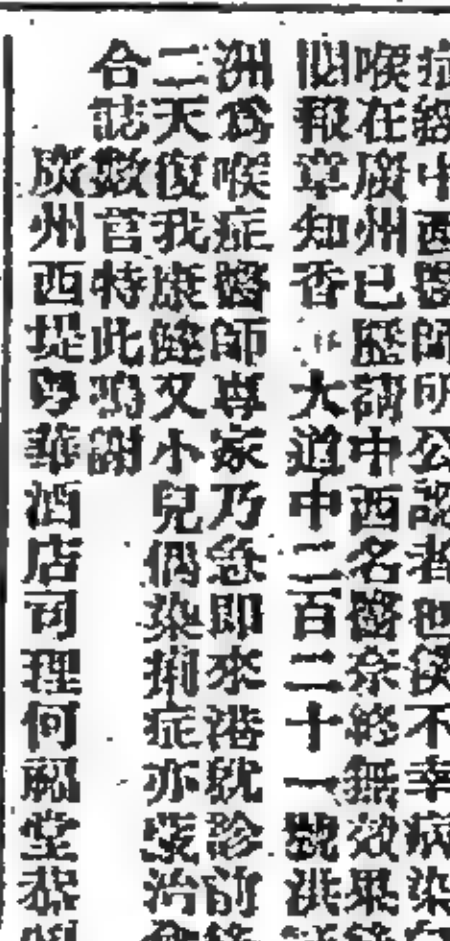 症經中西醫師所公認者也僕不幸病染
喉在廣州已歷請中西名醫奈終無效果
閱報章知香港大道中二百二十一號洪
洲為喉症醫師尊家乃急即來港就診前
二天復我康健又小兒偶染痢症亦蒙治
合誌數言特此鳴謝
廣州西堤粵華酒店司理何 堂